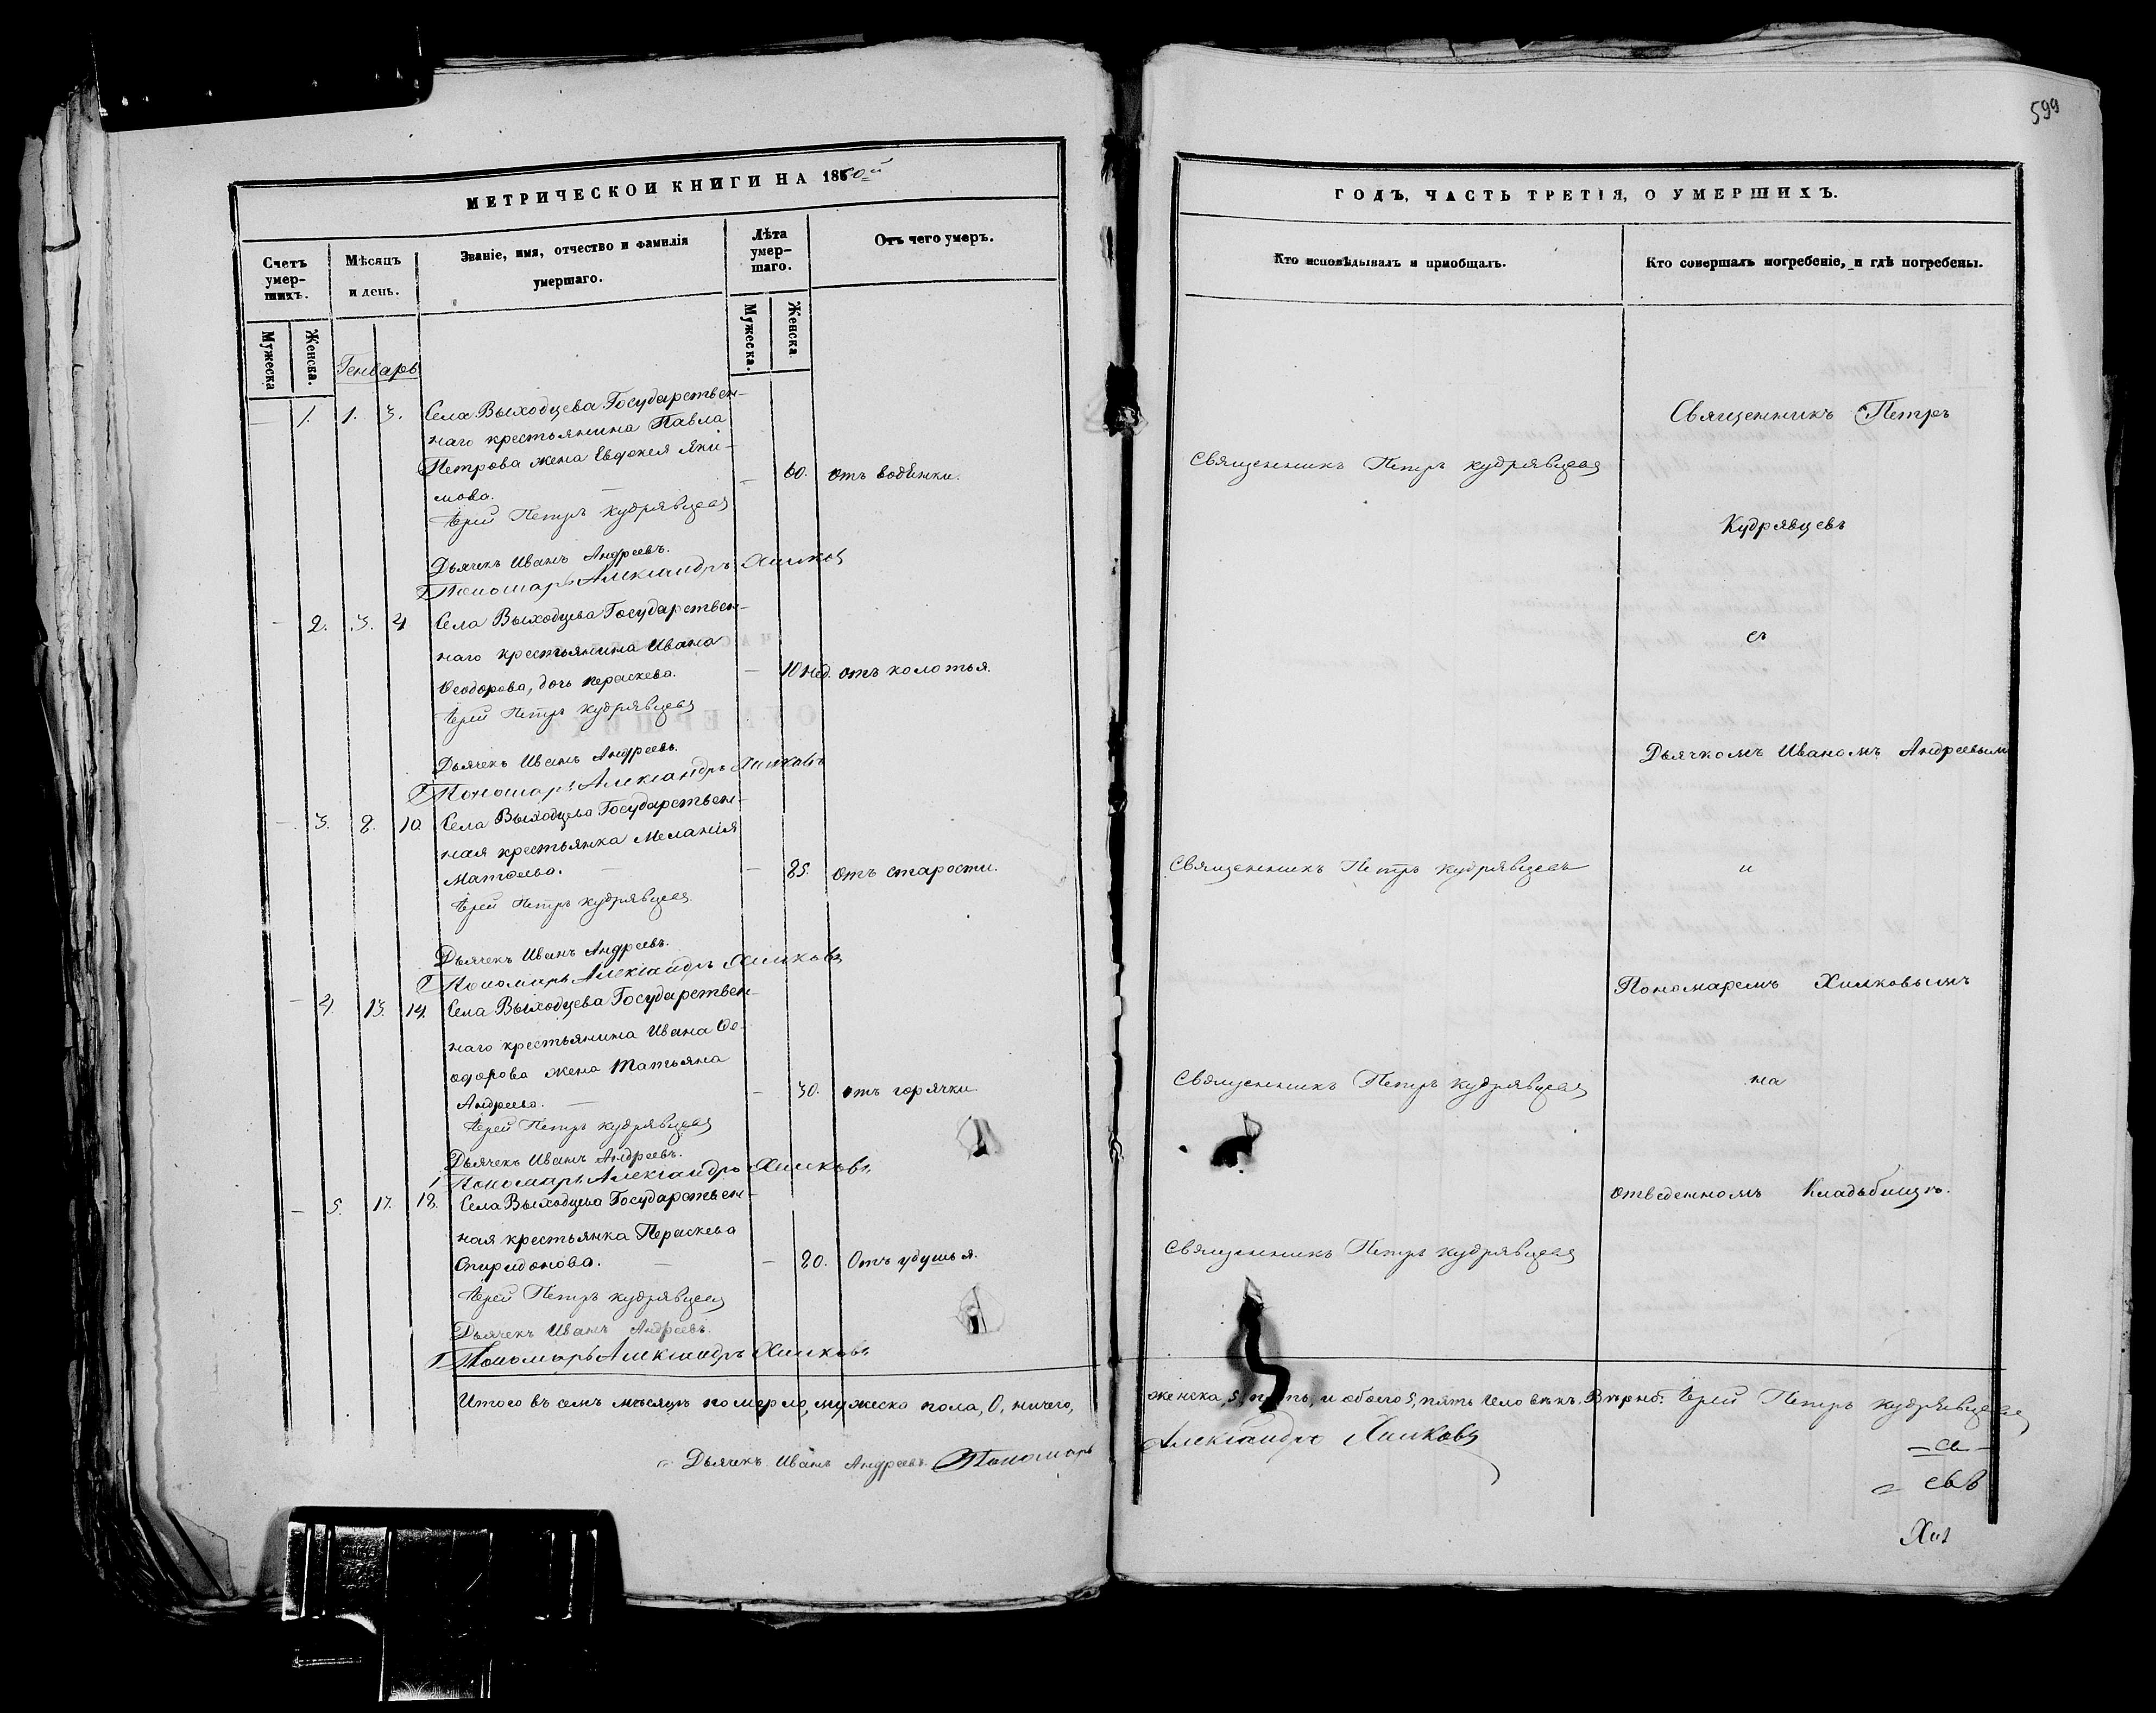 599
МЕТРИЧЕСКОЙ КНИГИ НА 1860й
Счетъ умер-шихъ.
Мѣсяцъ и день.
Званіе, имя, отчество и фамилія умершаго.
Лѣта умер-шаго.
Отъ чего умеръ.
Мужеска
Женска.
Мужеска.
Женска
Генварь
— 1. 1. 3. Села Выходцева Государствен-
наго крестьянина Павла
Петрова жена Евдокея Яки-
мова. — — 60. отъ водянки.
Іерей Петръ Кудрявцевъ
Дьячекъ Иванъ Андреевъ.
Пономарь Александръ Хилковъ
— 2. 3. 4 Села Выходцева Государствен-
наго крестьянина Ивана
Ѳеодорова, дочь Параскева. — 10 нед. отъ колотья.
Іерей Петръ Кудрявцевъ
Дьячекъ Иванъ Андреевъ.
Пономарь Александръ Хилковъ
— 3. 8. 10. Села Выходцева Государствен-
ная крестьянка Меланія
Матѳеева. — — 85. отъ старости.
Іерей Петръ Кудрявцевъ
Дьячекъ Иванъ Андреевъ.
Пономарь Александръ Хилковъ
— 4. 13. 14. Села Выходцева Государствен-
наго крестьянина Ивана Ѳе-
одорова жена Татьяна
Андреева. — — 30. отъ горячки
Іерей Петръ Кудрявцевъ
Дьячекъ Иванъ Андреевъ.
Пономарь Александръ Хилковъ
— 5. 17. 18. Села Выходцева Государствен-
ная крестьянка Параскева
Спиридонова. — — 80. Отъ удушья.
Іерей Петръ Кудрявцевъ
Дьячекъ Иванъ Андреевъ.
Пономарь Александръ Хилковъ
Итого въ семъ мѣсяцѣ померло, мужеска пола, 0, ничего,
Дьячекъ Иванъ Андреевъ. Пономарь
ГОДЪ, ЧАСТЬ ТРЕТІЯ, О УМЕРШИХЪ.
Кто исповѣдывалъ и пріобщалъ.
Кто совершалъ погребеніе, и гдѣ погребены.
Священникъ Петръ
Священникъ Петръ Кудрявцевъ
Кудрявцевъ
съ
Дьячкомъ Иваномъ Андреевымъ
Священникъ Петръ Кудрявцевъ
и
Пономаремъ Хилковымъ
Священникъ Петръ Кудрявцевъ
на
отведенномъ Кладьбищѣ.
Священникъ Петръ Кудрявцевъ
женска, 5, пять, и обоего 5, пять человѣкъ. Вѣрно: Іерей Петръ Кудрявцевъ
Александръ Хилковъ